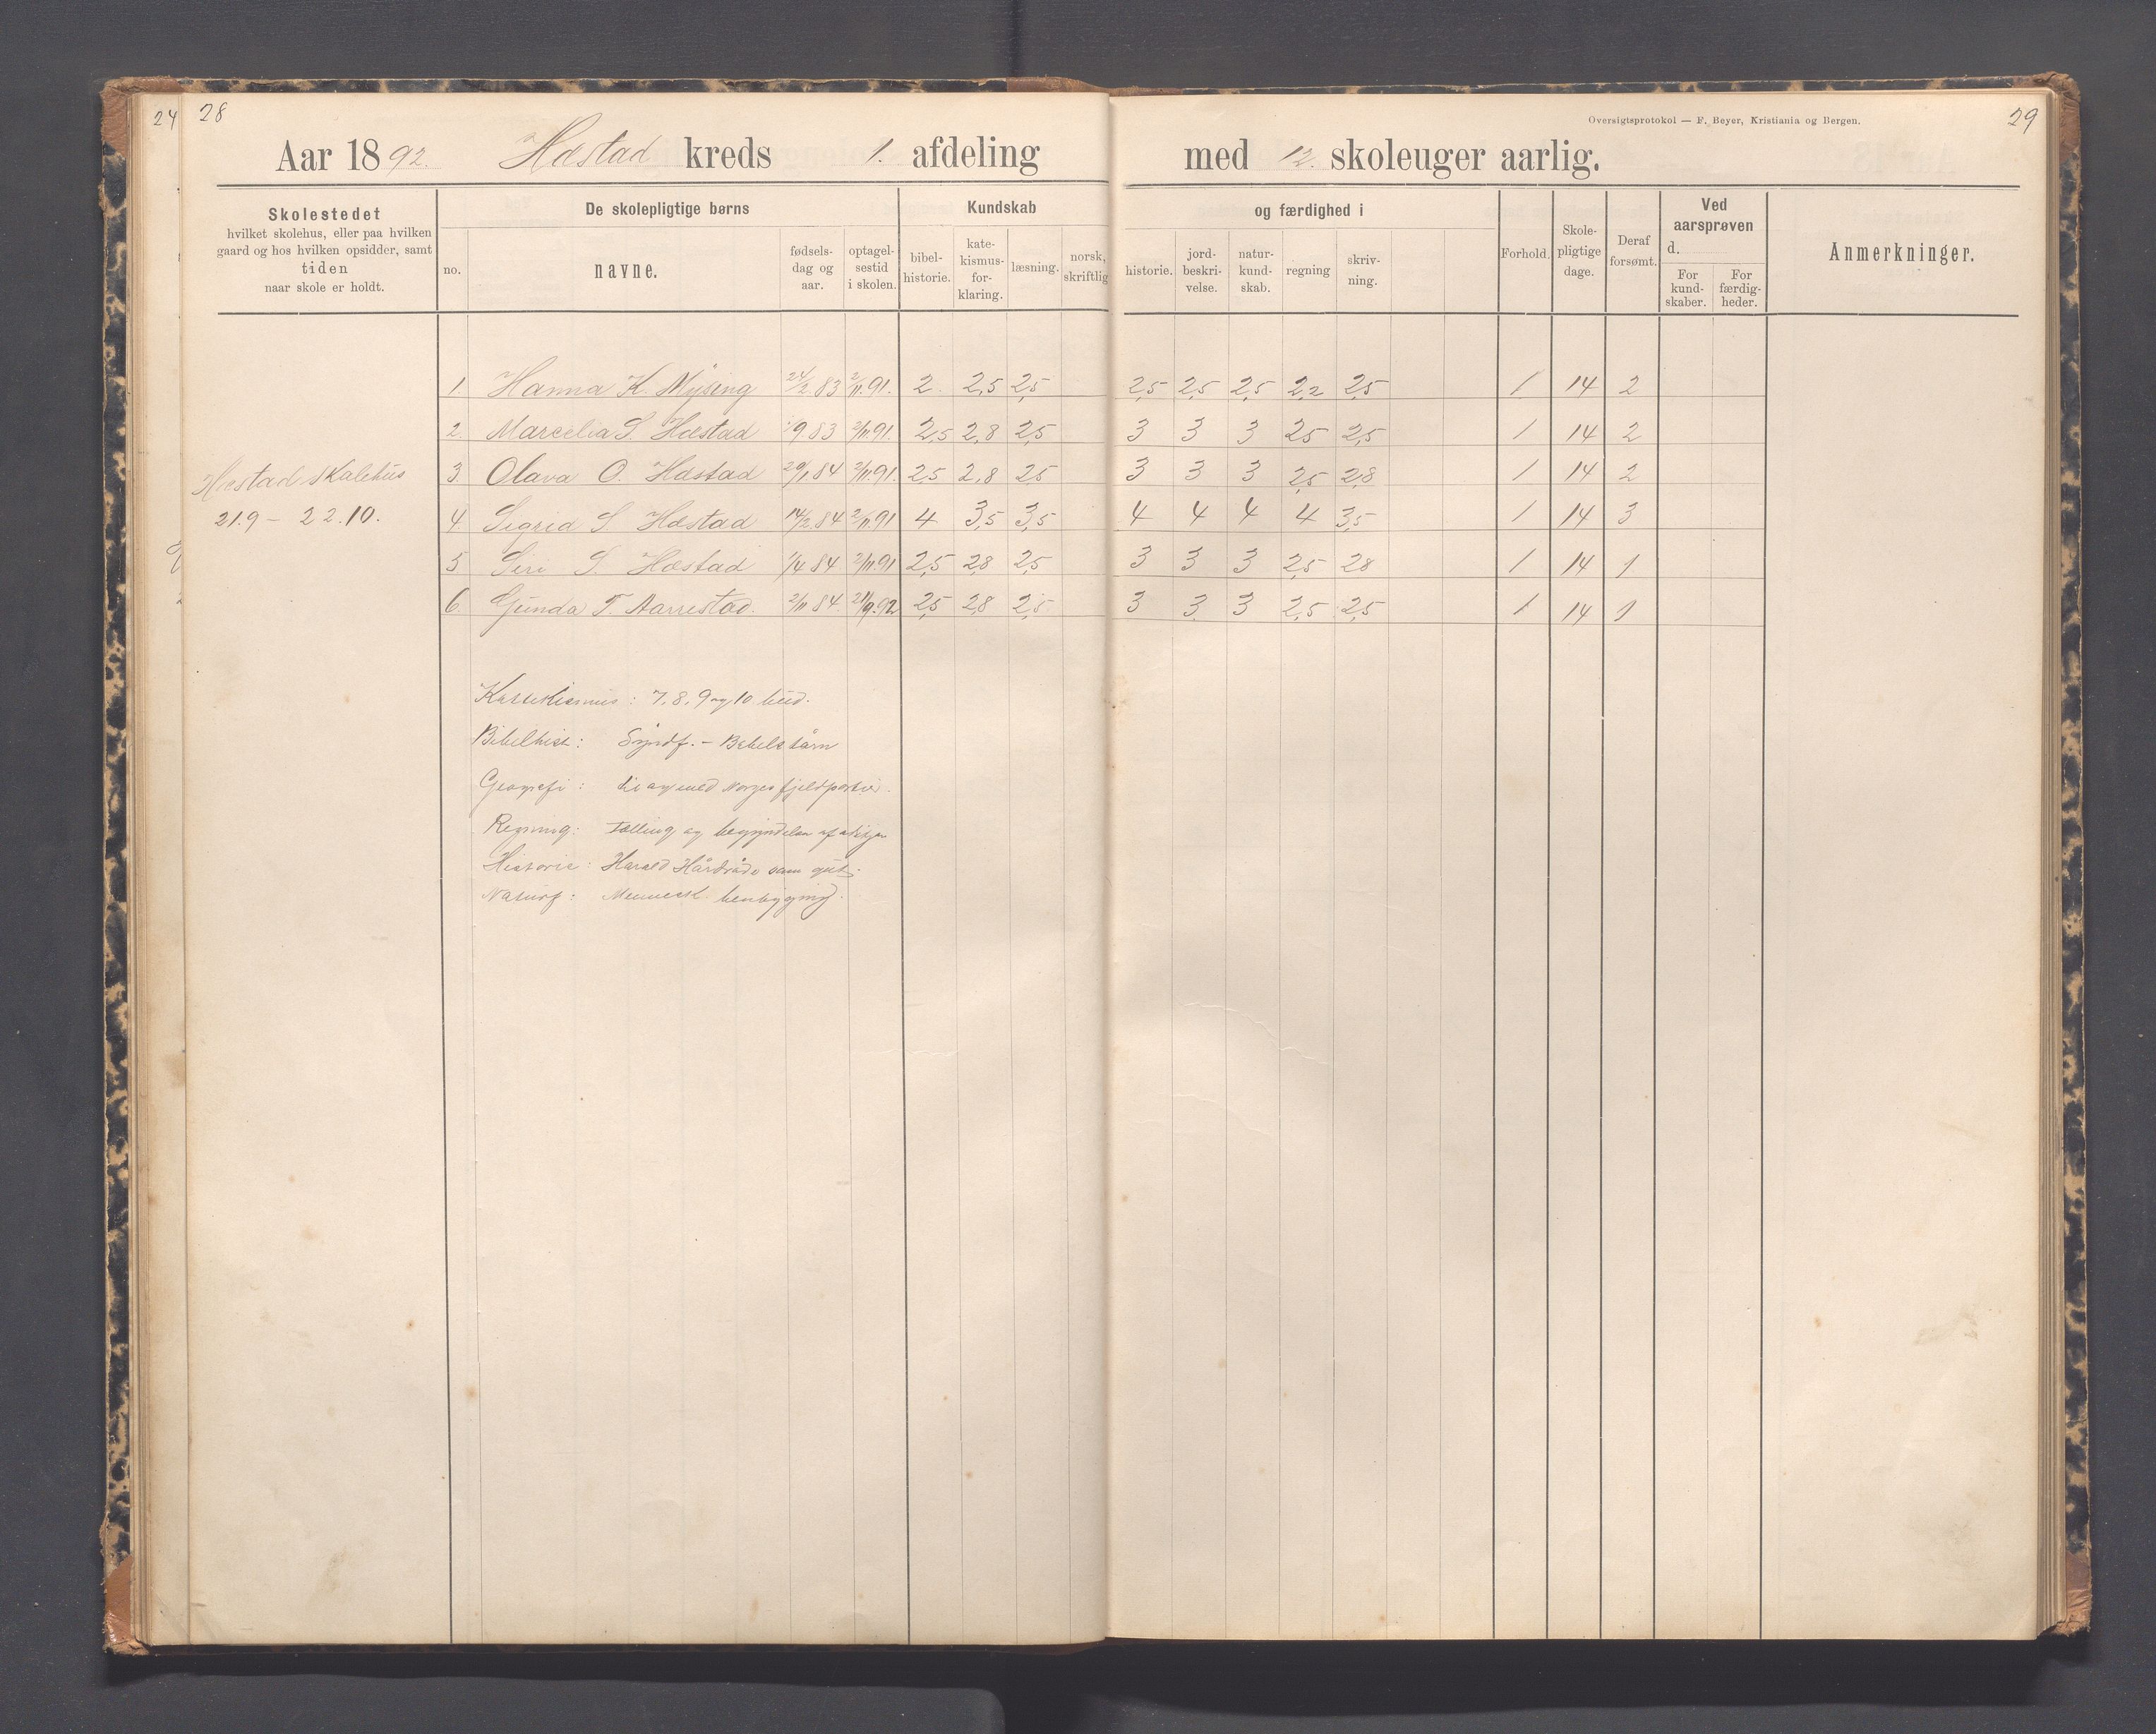 24 28
Oversigtsprotokol — F. Beyer, Kristiania og Bergen. 29
Aar 1892. Hæstad kreds 1. afdeling med 12. skoleuger aarlig.
Skolestedet
hvilket skolehus, eller paa hvilken
gaard og hos hvilken opsidder, samt
tiden
naar skole er holdt.
De skolepligtige børns
no. navne. fødsels-dag og aar. optagel-sestid i skolen.
Kundskab og færdighed i
bibel-historie. kate-kismus-for-klaring. læsning. norsk, skriftlig historie. jord-beskri-velse. natur-kund-skab. regning skriv-ning.
Forhold. Skole-pligtige dage. Deraf forsømt.
Ved aarsprøven d.
For kund-skaber. For færdig-heder.
Anmerkninger.
1. Hanna K. Mysing 24/2 83 2/11.91. 2 2,5 2,5 2,5 2,5 2,5 2,2 2,5 1 14 2
2. Marcelia S. Hæstad 9 83 2/11.91. 2,5 2,8 2,5 3 3 3 25 2,5 1 14 2
3. Olava O. Hæstad 29/1 84 2/11.91. 25 2,8 25 3 3 3 2,5 2,8 1 14 2
4. Sigrid S Hæstad 14/2.84 2/11.91 4 3,5 3,5 4 4 4 4 3,5 1 14 3
5 Siri S. Hæstad 1/4 84 2/11.91 2,5 28 2,5 3 3 3 2,5 28 1 14 1
6. Gunda T. Aarrestad. 2/11 84. 21/9.92 2,5 2,8 2,5 3 3 3 2,5 2,5 1 14 1
Hæstad skolehus
21.9 – 22.10.
Katekismus: 7, 8, 9 og 10 bud.
Bibelhist: Syndf. – Babels tårn
Geografi: til og med Norges fjeldpartier.
Regning: Tælling og begyndelsen af
Historie: Harald Hårdråde som gut.
Naturf: Mennesk. benbygning.